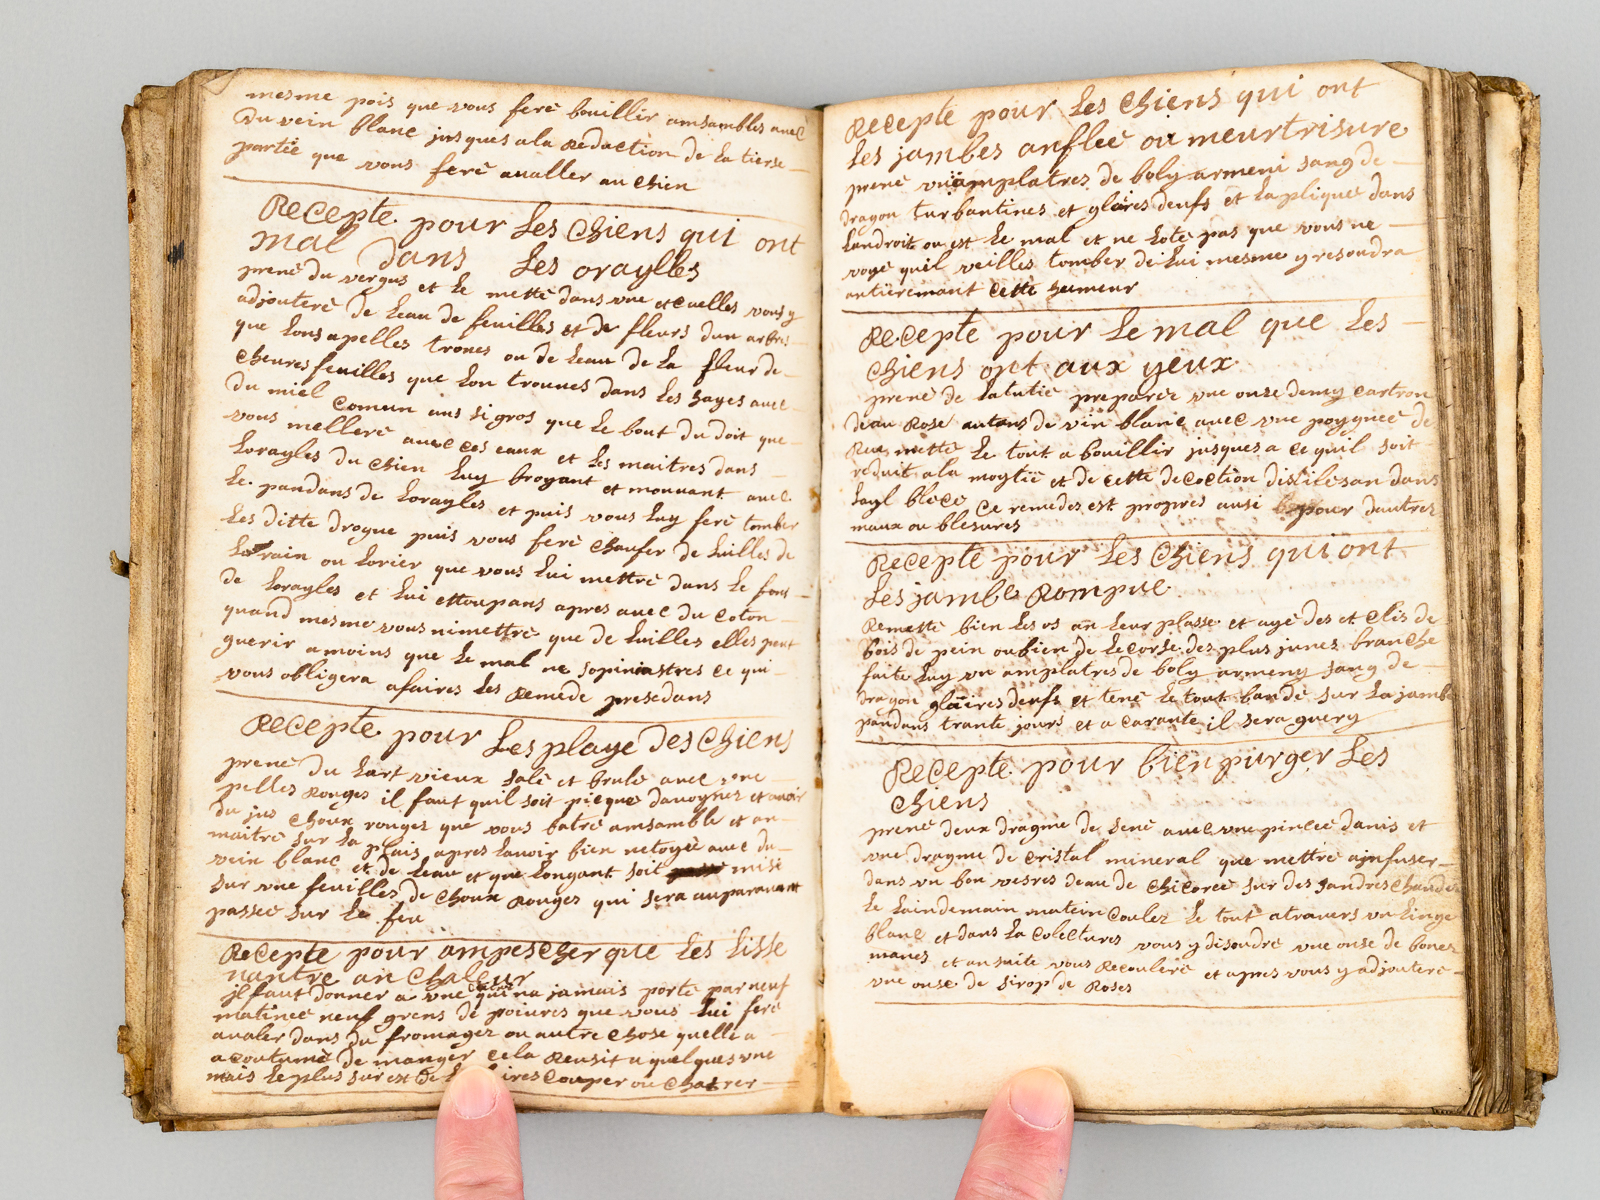 mesme pois que vous feré bouillir amsambles avec
Du vein blanc jusques ala Redaction de la tierse
partië que vous feré avaller au chien
Recepte pour Les Chiens qui ont
mal Dans Les oraylles
prené du vergus et le metté dans une etcuelles vous y
adjouteré de leau de feuilles et de fleurs dun arbres
que lons apelles trones ou de leau de la fleur de
cheures feuilles que lon trouues dans les hayes auec
du miel comun aus si gros que le bout du doit que
vous melleré auec ces eaux et les maitres dans
lorayles du chien luy broyant et mouuant auec
le pandans de lorayles et puis vous luy feré tomber
les ditte drogue puis vous feré chaufer de luilles de
lorain ou lorier que vous lui mettré dans le fons
de lorayles et lui ettoupans apres auec du coton
quand mesme vous nimettré que de luilles elles peut
guerir amoins que le mal ne sopiniastres ce qui
vous obligera afaires les Remede presedans
Recepte pour Les playe Des Chiens
prené du lart vieux salé et brulé auec une
pelles Rouges il faut quil soit picque dauoynez et auoir
du jus choux rouges que vous batré amsamble et an
maitré sur la plais apres lauoir bien netoyée auec du
vein blanc et de leau et que longant soit mise
sur une feuilles de choux Rouges qui sera auparauant
passée sur le feu
Recepte pour ampescher que Les Lisse
nantre an Chaleur
jl faut donner a une qui na jamais porté par neuf
matinée neuf grens de poiures que vous lui feré
avaler dans du fromagez ou autre chose quelle a
acoutumé de manger cela Reusit a quelques une
mais le plus sur est de les faires couper ou chatrer
Recepte pour Les Chiens qui ont
Les jambes anflee ou meurtrisure
prené un amplatres de boly armeni sang de
dragon turbantines et glaires deufs et laplique dans
landroit ou est le mal et ne loté pas que vous ne
voyé quil veilles tomber de lui mesme y resoudra
antieremant cette humeur
Recepte pour Le mal que Les
Chiens ont aux yeux
prené de latutië preparée une onse demy cartron
deau Rose autans de vin blanc auec une poygnée de
Rue metté le tout a bouillir jusques a ce quil soit
reduit ala moytië et de cette decoction distilesan dans
layl blecé ce remedes est propres ausi pour dautres
maux ou blesures
Recepte pour Les Chiens qui ont
Les jambe Rompue
Remetté bien les os an leur plasse et ayé des et clis de
bois de pein ou bien de lecorse des plus junes branche
faite luy un amplatres de boly armeny sang de
dragon glaires deufs et tené le tout bandé sur la jambe
pandans trante jours et a carante il sera guery
Recepte pour bien purger Les
Chiens
prené deux dragme de sené auec une pincée danis et
une dragme de cristal mineral que mettré ainfuser
dans un bon vesres deau de chicorée sur des sandres chaudes
le laindemain matein coulez le tout atrauers un linge
blanc et dans la colectures vous y disoudré une onse de bones
manes et ansuite vous Recouleré et apres vous y adjouteré
une onse de sirop de Roses